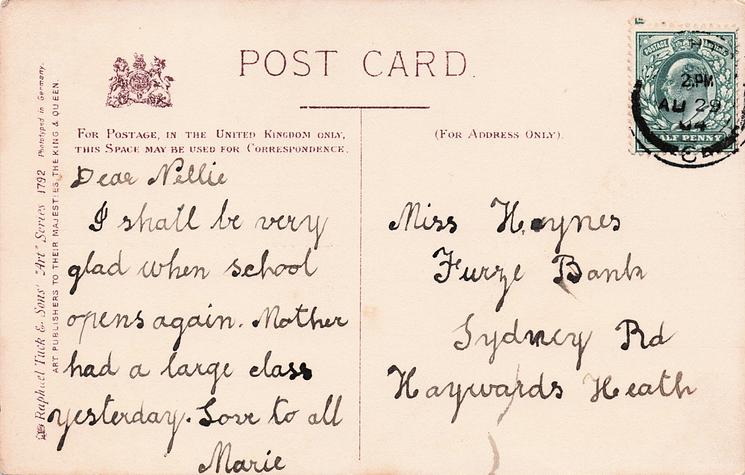 POST CARD.
FOR POSTAGE, IN THE UNITED KINGDOM ONLY,
THIS SPACE MAY BE USED FOR CORRESPONDENCE.
(FOR ADDRESS ONLY).
Raphael Tuck & Sons' "Art" Series 1792 Phototyped in Germany.
ART PUBLISHERS TO THEIR MAJESTIES, THE KING & QUEEN.
Dear Nellie
I shall be very
glad when school
opens again. Mother
had a large class
yesterday. Love to all
Marie
Miss Haynes
Furze Bank
Sydney Rd
Haywards Heath
POSTAGE
2 PM
AU 29
HALF PENNY